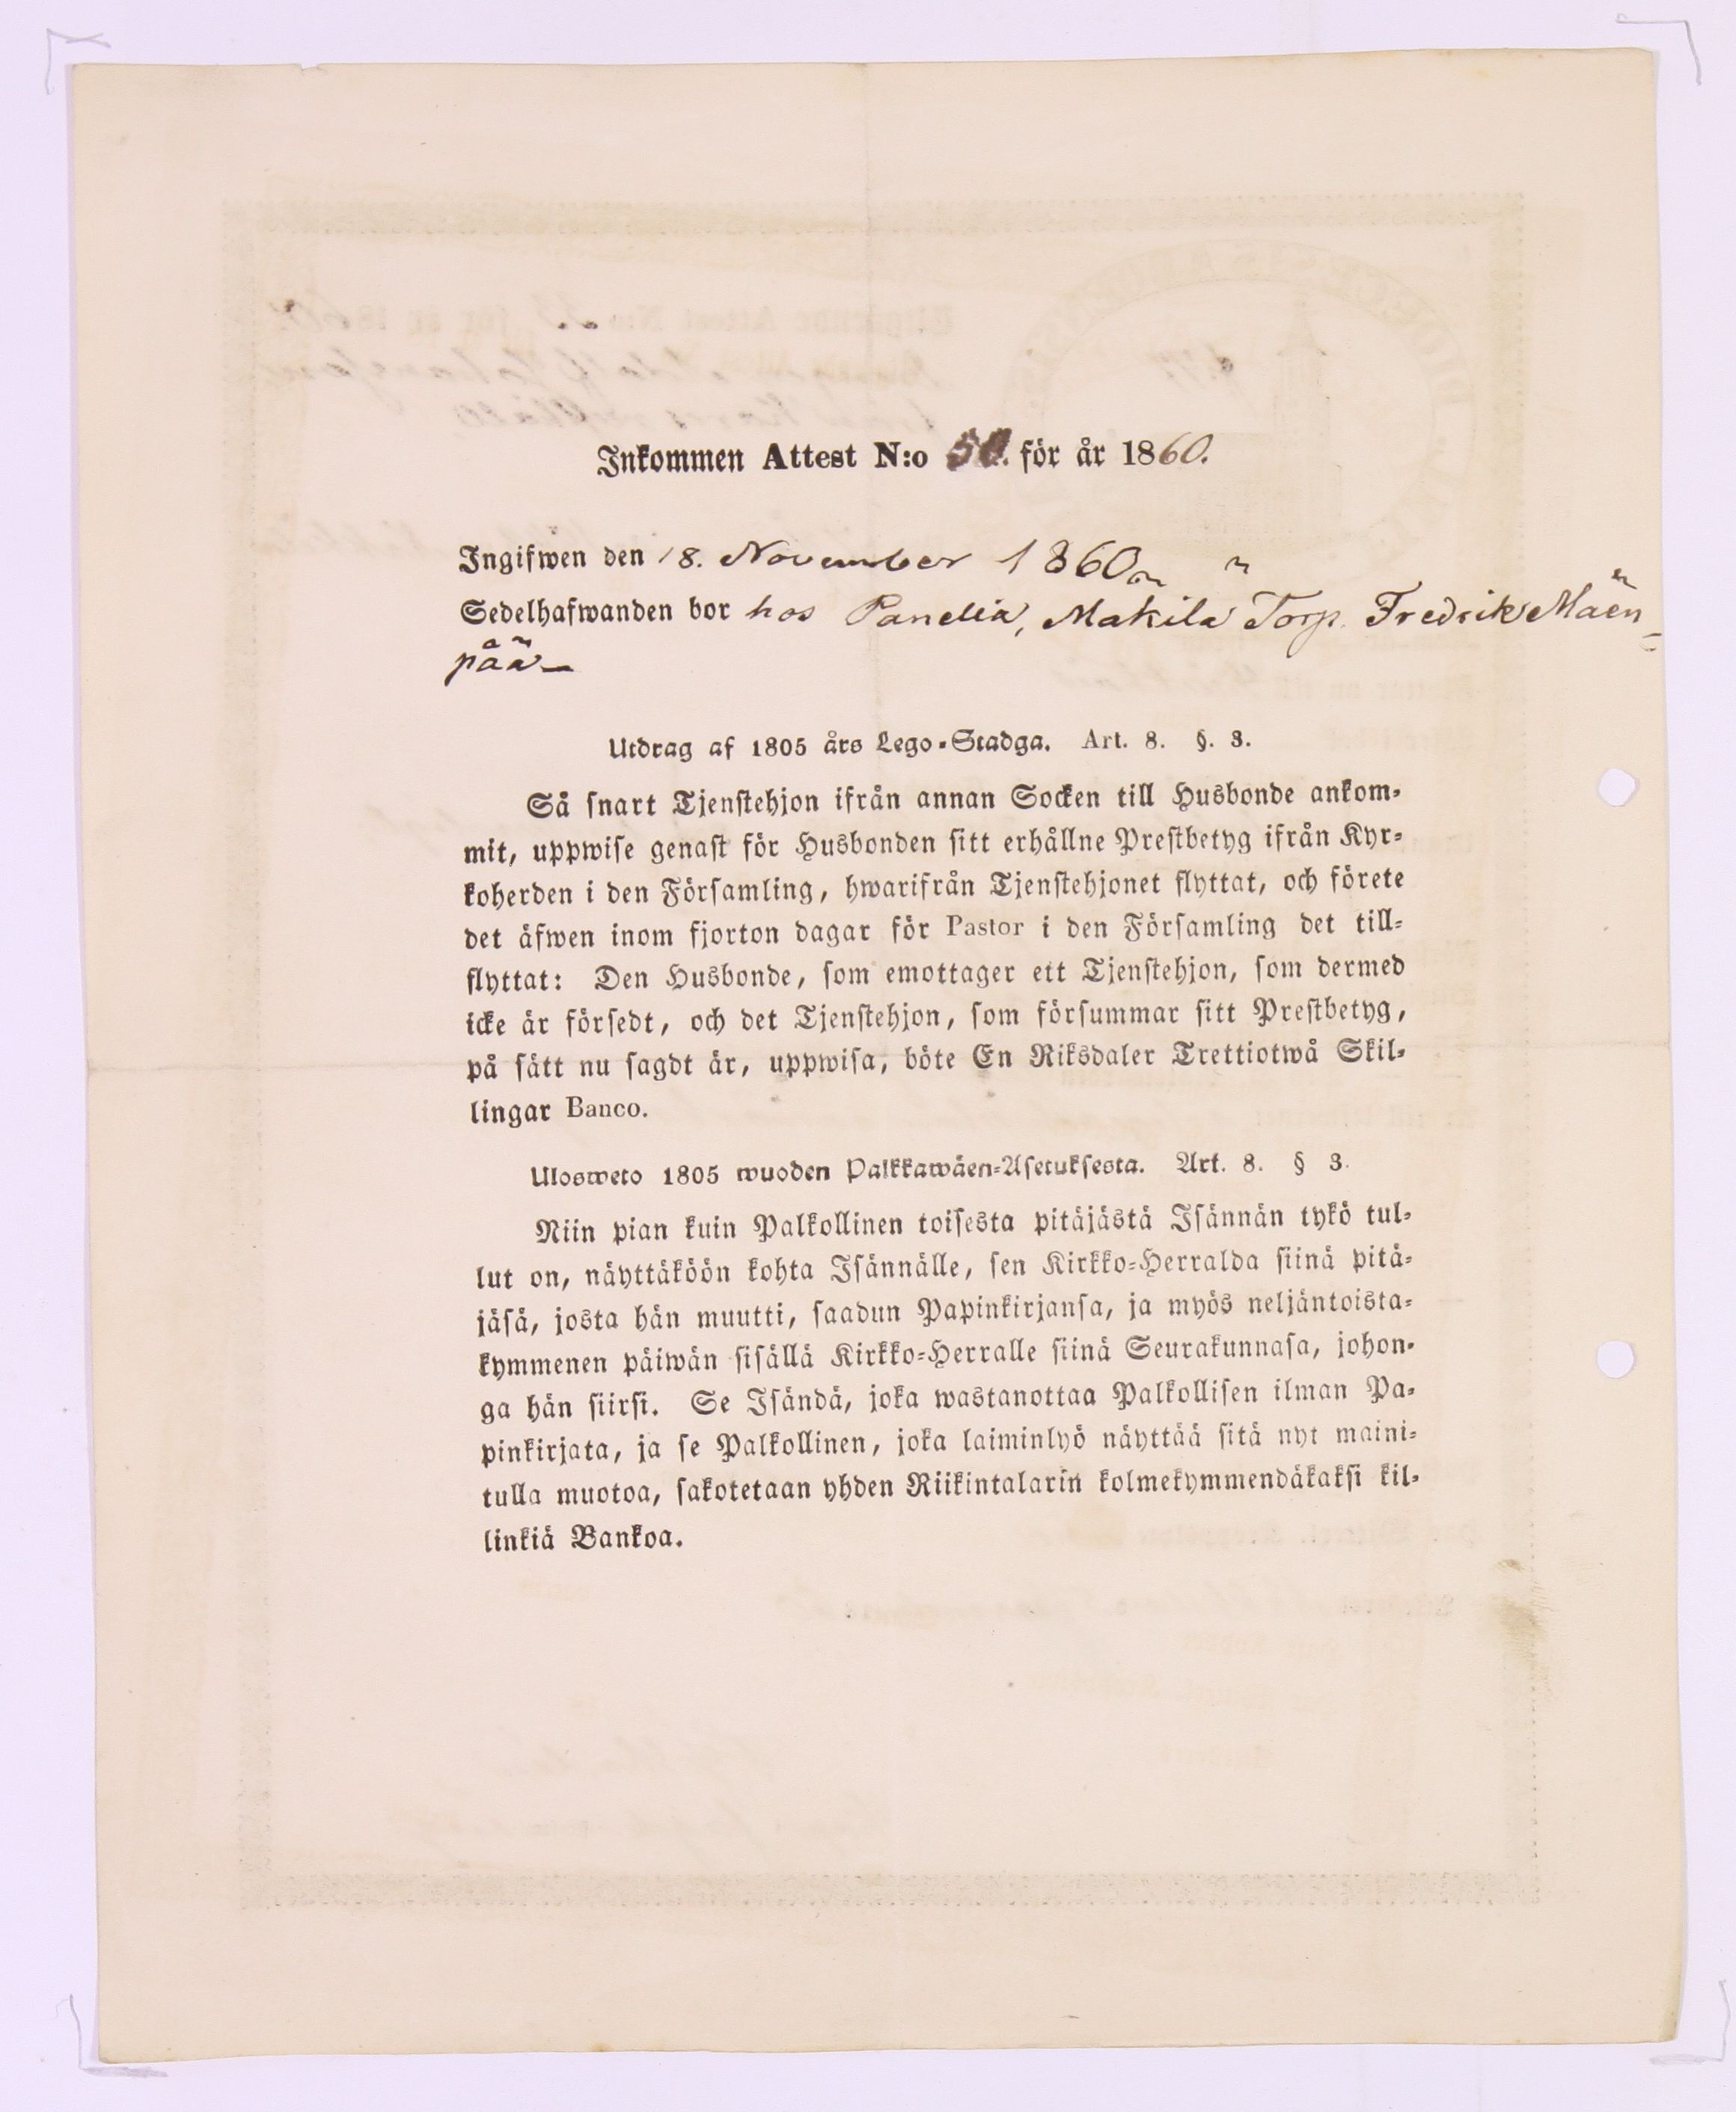 Inkommen Attest N:o 50. för år 1860.
Ingifwen den 18. November 1860
Sedelhafwanden bor hos Panelia, Mäkilä Torp. Fredrik Mäen-
pää
Utdrag af 1805 års Lego-Stadga. Art. 8. §. 3.
Så snart Tjenstehjon ifrån annan Socken till Husbonde ankom-
mit, uppwise genast för Husbonden sitt erhållne Prestbetyg ifrån Kyr-
koherden i den Församling, hwarifrån Tjenstehjonet flyttat, och förete
det äfwen inom fjorton dagar för Pastor i den Församling det till-
flyttat: Den Husbonde, som emottager ett Tjenstehjon, som dermed
icke är försedt, och det Tjenstehjon, som försummar sitt Prestbetyg,
på sätt nu sagdt är, uppwisa, böte En Riksdaler Trettiotwå Skil-
lingar Banco.
Ulosweto 1805 wuoden Palkkawäen-Asetuksesta. Art. 8. § 3.
Niin pian kuin Palkollinen toisesta pitäjästä Isännän tykö tul-
lut on, näyttäköön kohta Isännälle, sen Kirkko-Herralda siinä pitä-
jäsä, josta hän muutti, saadun Papinkirjansa, ja myös neljäntoista-
kymmenen päiwän sisällä Kirkko-Herralle siinä Seurakunnasa, johon-
ga hän siirsi. Se Isändä, joka wastanottaa Palkollisen ilman Pa-
pinkirjata, ja se Palkollinen, joka laiminlyö näyttää sitä nyt maini-
tulla muotoa, sakotetaan yhden Riikintalarin kolmekymmendäkaksi kil-
linkiä Bankoa.